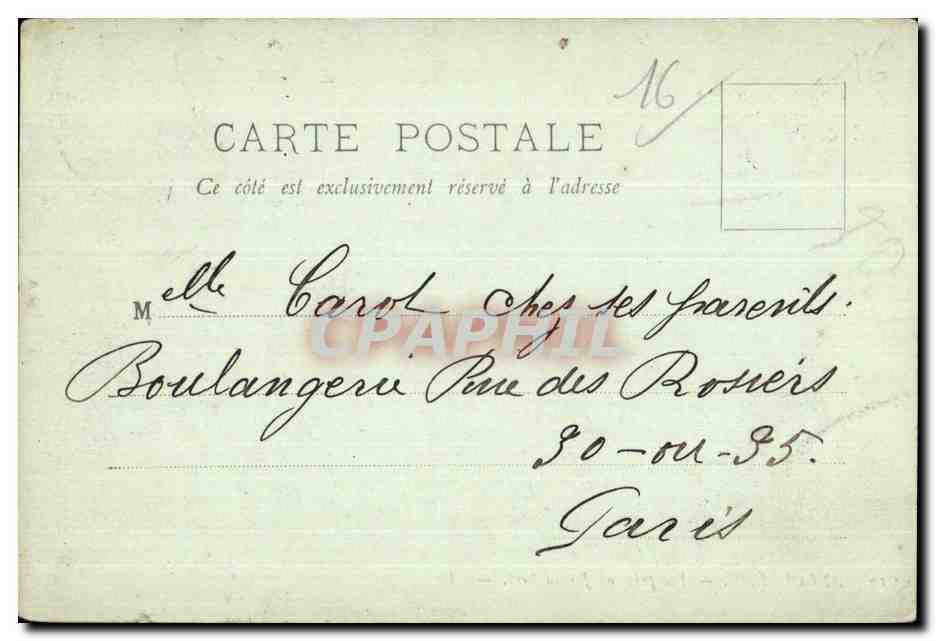 16
CARTE POSTALE
Ce côté est exclusivement réservé à l'adresse
Melle Carol chez ses parents.
CPAPHIL
Boulangerie Rue des Rosiers
30 - ou - 35.
Paris